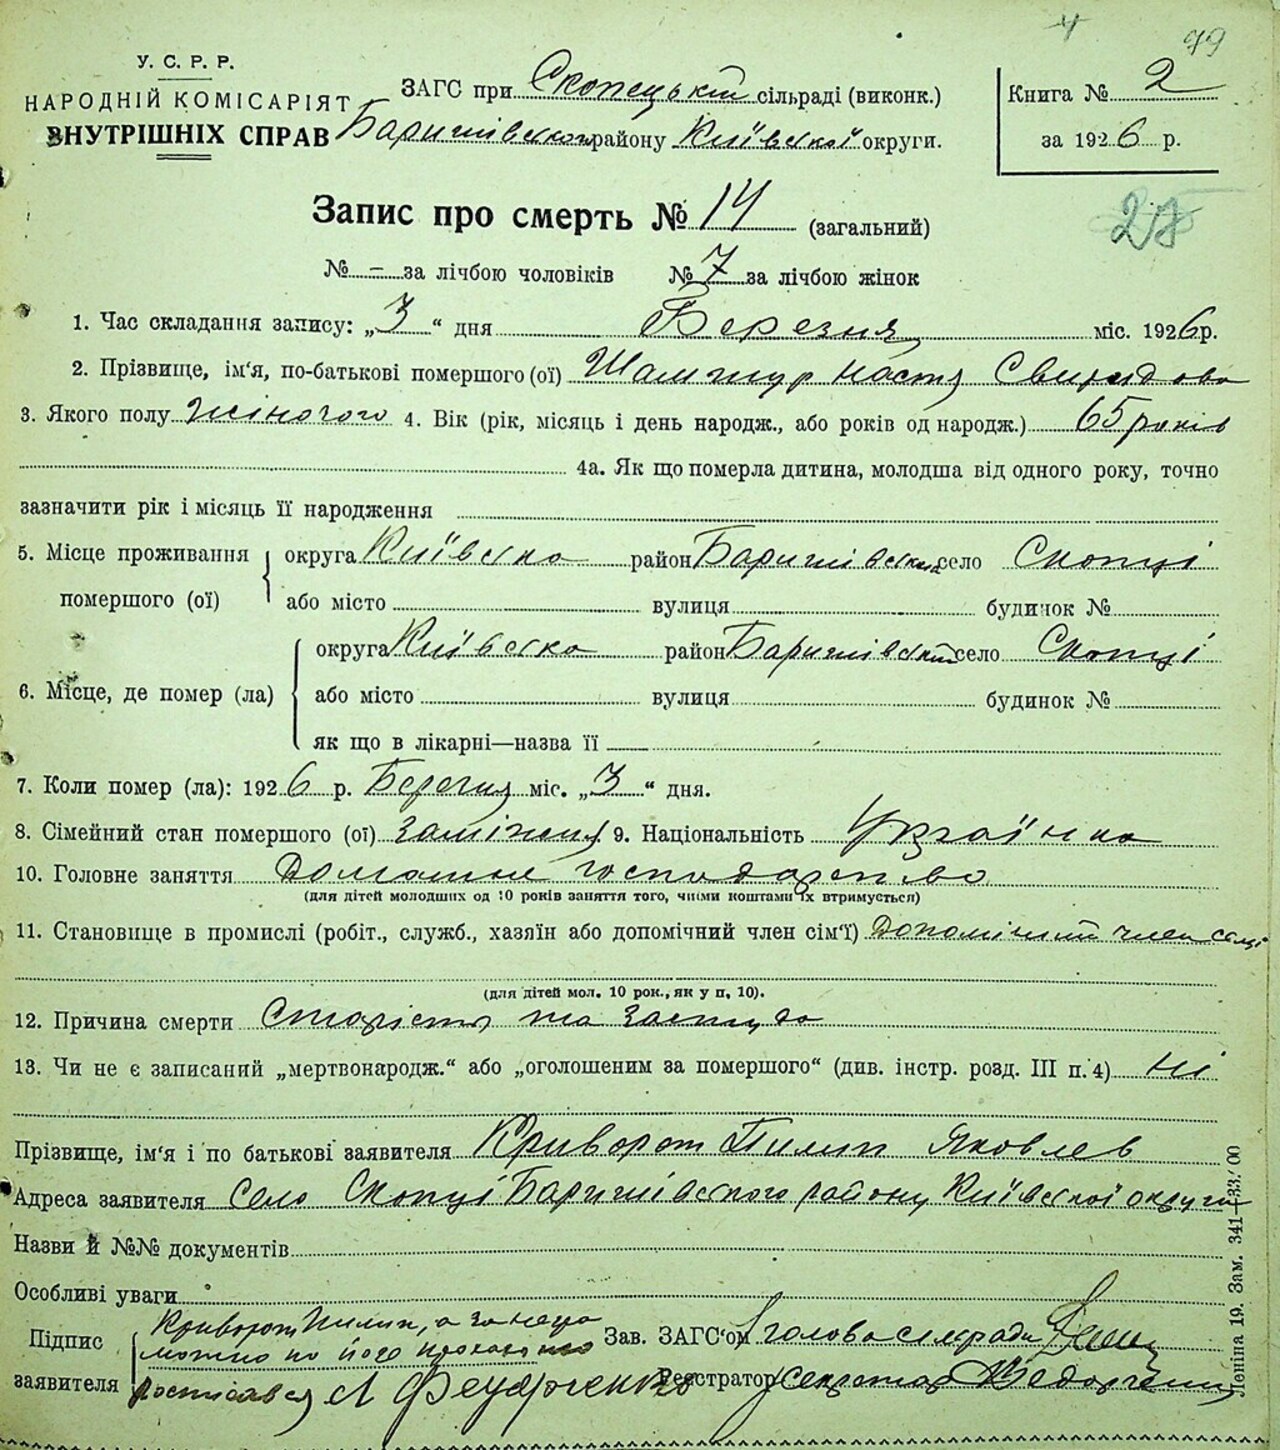 99
У. С. Р. Р.
НАРОДНІЙ КОМІСАРІЯТ
ВНУТРІШНІХ СПРАВ
ЗАГС при Скопецькій сільраді (виконк.)
Баришівського району Київської округи.
Книга № 2
за 1926 р.
Запис про смерть № 14 (загальний)
27
№ – за лічбою чоловіків № 7 за лічбою жінок
1. Час складання запису: „3“ дня Березня міс. 1926 р.
2. Прізвище, ім‘я, по-батькові помершого (ої) Шамшур Настя Свиридова
3. Якого полу жіночого 4. Вік (рік, місяць і день народж., або років од народж.) 65 років
4а. Як що померла дитина, молодша від одного року, точно
зазначити рік і місяць її народження
5. Місце проживання помершого (ої) округа Київська район Баришівський село Скопці
або місто вулиця будинок №
6. Місце, де помер (ла) округа Київська район Баришівський село Скопці
або місто вулиця будинок №
як що в лікарні—назва її
7. Коли помер (ла): 1926 р. Березня міс. „3“ дня.
8. Сімейний стан помершого (ої) заміжня 9. Національність Українка
10. Головне заняття Домашнє господарство
(для дітей молодших од 10 років заняття того, чиїми коштами їх втримується)
11. Становище в промислі (робіт., служб., хазяїн або допомічний член сім‘ї) Допомічний член сем‘ї
(для дітей мол. 10 рок., як у п, 10).
12. Причина смерти Старість та застуда
13. Чи не є записаний „мертвонародж.“ або „оголошеним за помершого“ (див. інстр. розд. III п. 4) ні
Прізвище, ім‘я і по батькові заявителя Криворот Пилип Яковлев
Адреса заявителя Село Скопці Баришівського району Київської округи
Назви й №№ документів
Особливі уваги
Підпис заявителя Криворот Пилип, а за него
по його проханню
росписався Федорченко
Зав. ЗАГС‘ом голова сілради
Реєстратор секретар Федорченко
Леніна 19. Зам. 341—33/00